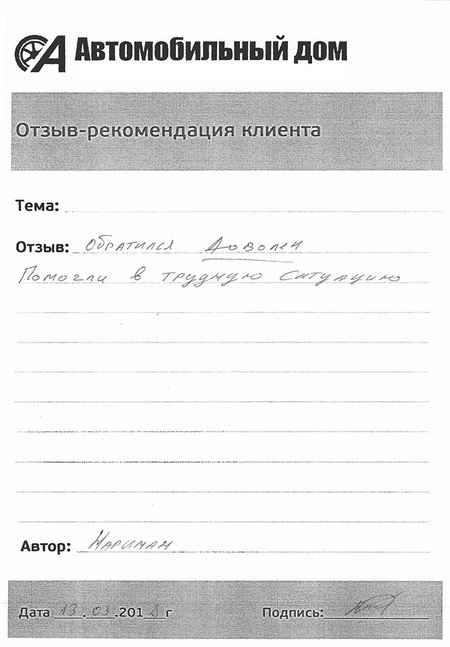 Автомобильный дом
Отзыв-рекомендация клиента
Тема:
Отзыв: Обратился доволен
Помогли в трудную ситуацию
Автор: Нариман
Дата 13.03.2018 г Подпись: